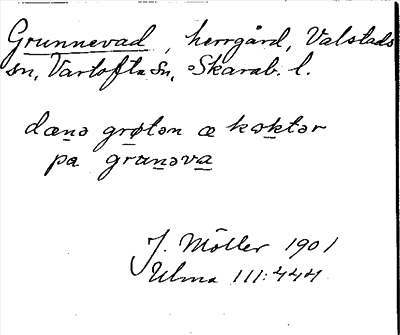 Grunnevad, herrgård, Valstads
sn, Vartofta Sn, Skarab. l.
dænə grøtən æ koktər
pa grunəva
J. Möller 1901
Ulma 111:444